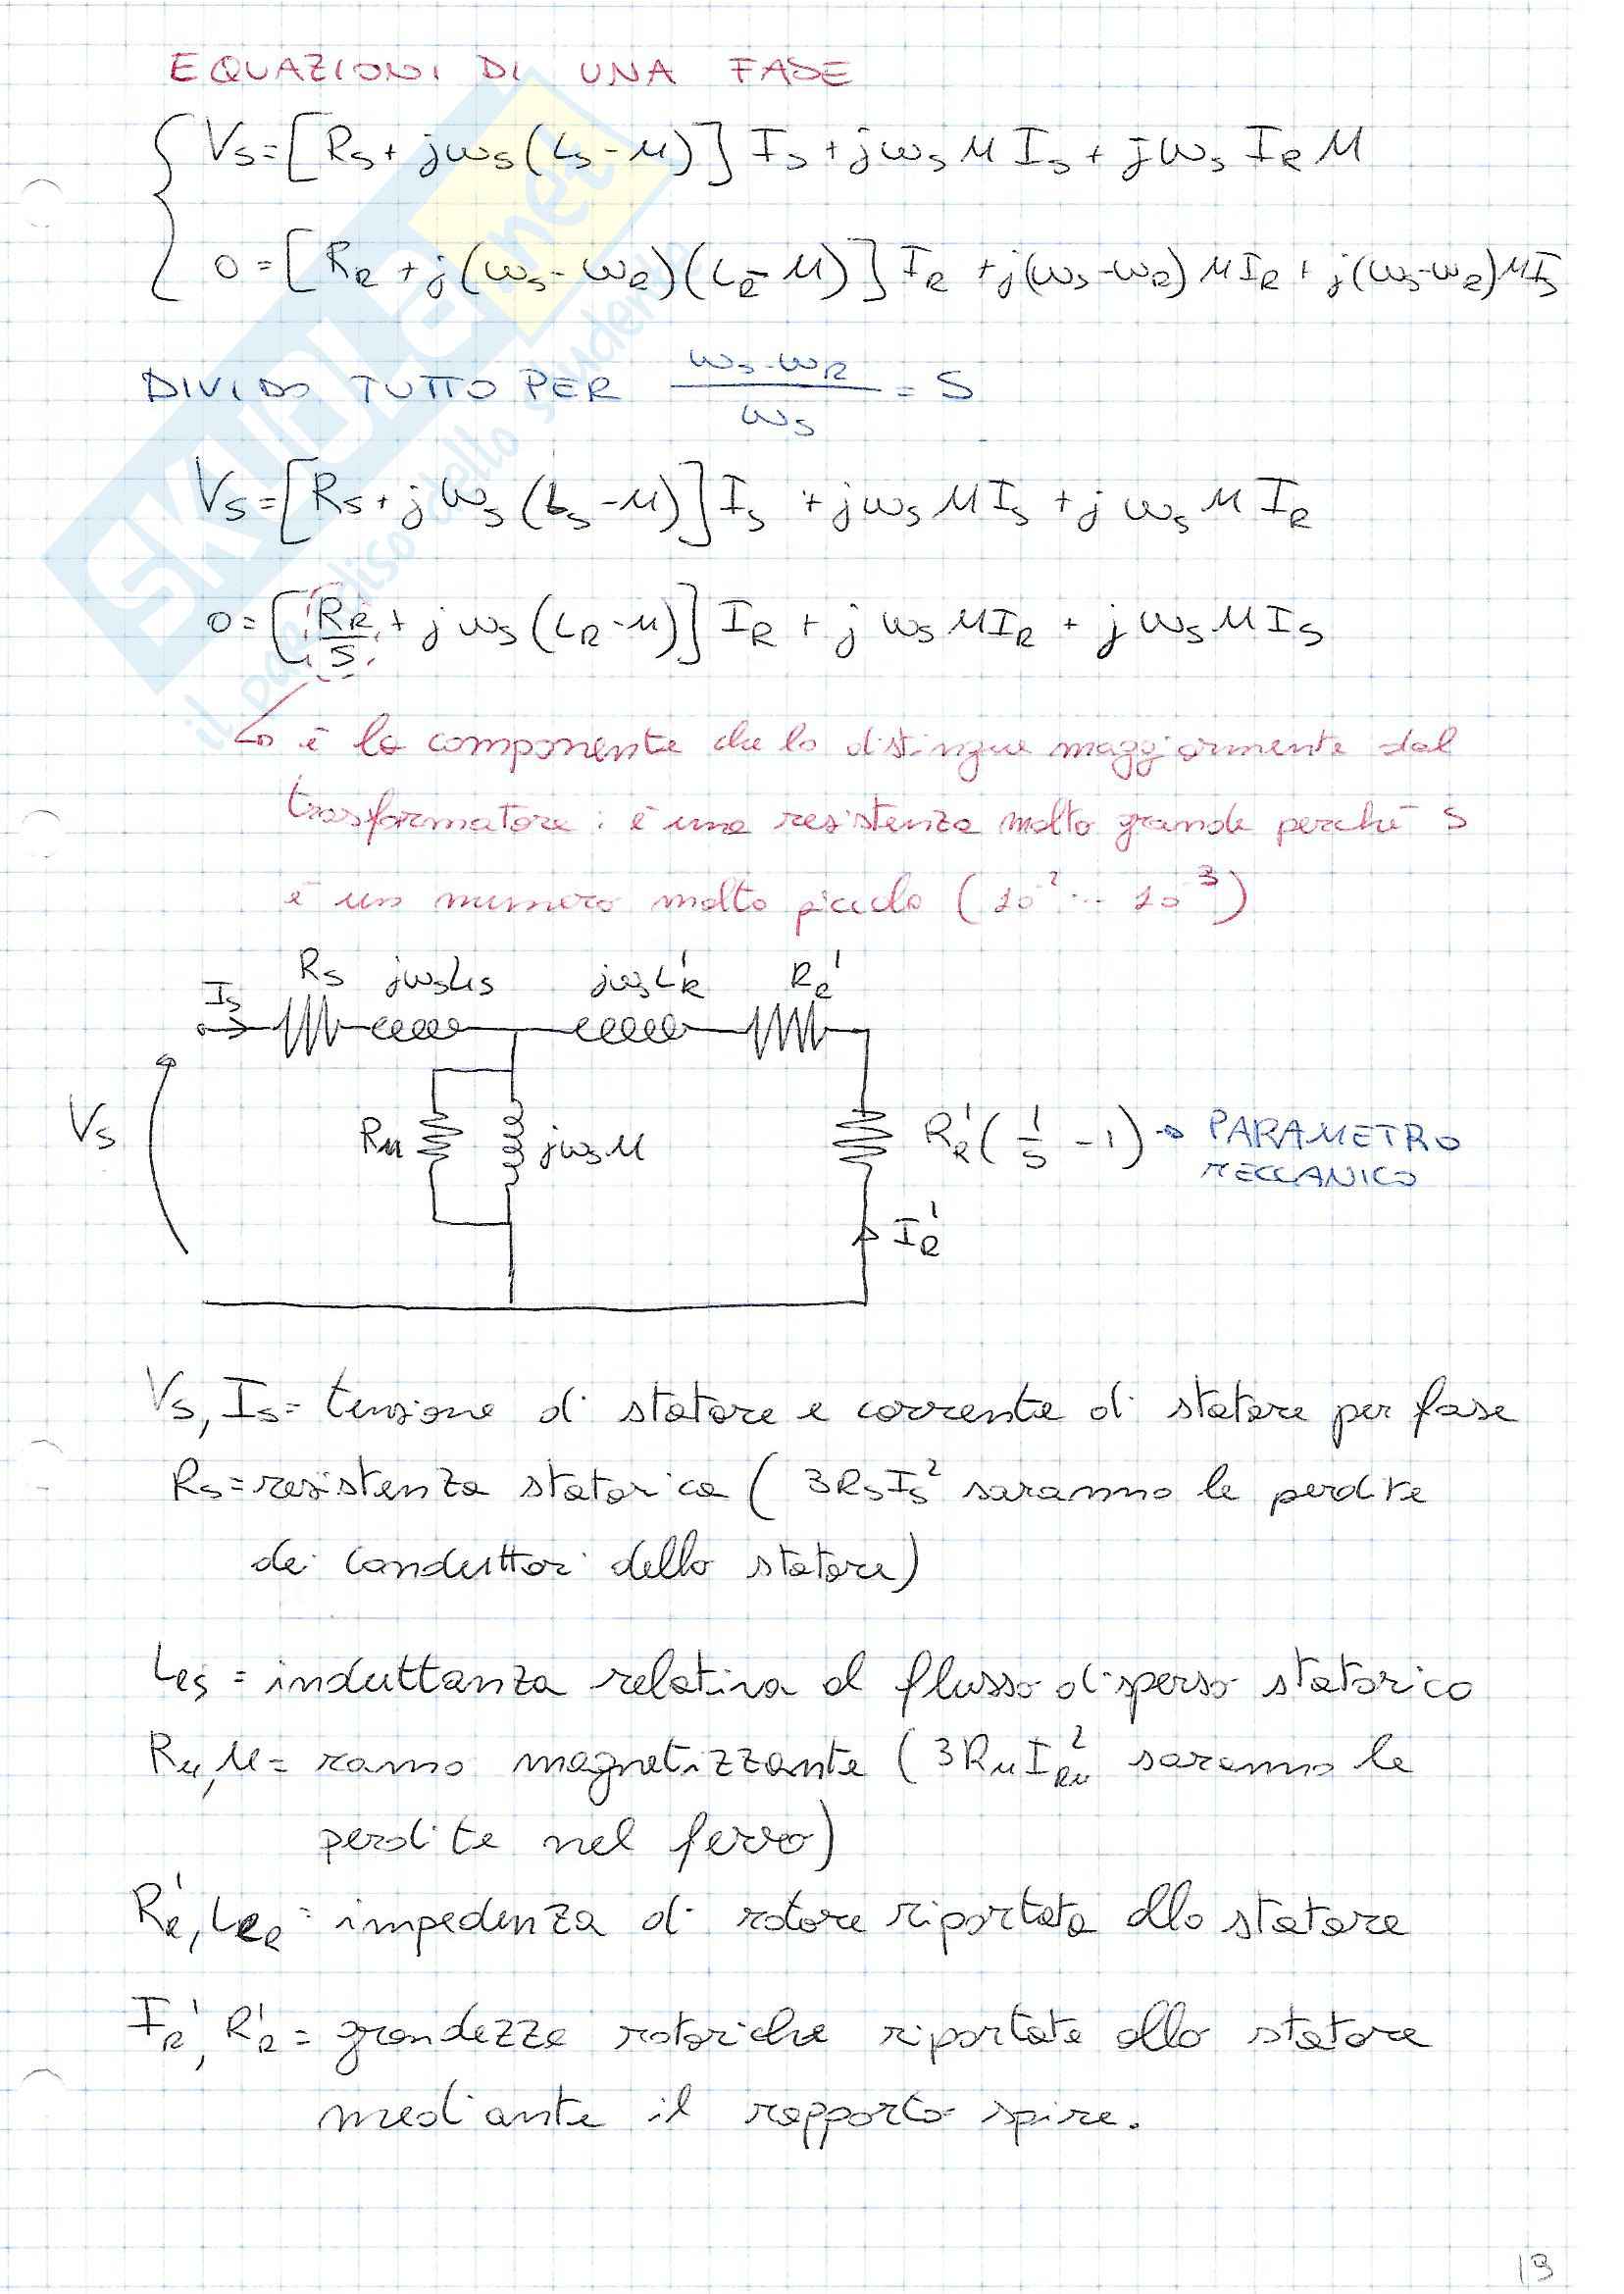 EQUAZIONI DI UNA FASE
Vs=[Rs+jωs(Ls-M)]Is+jωsMIs+jωsIRM
0=[RR+j(ωs-ωR)(LR-M)]IR+j(ωs-ωR)MIR+j(ωs-ωR)MIs
DIVIDO TUTTO PER ωs-ωR/ωs = S
Vs=[Rs+jωs(Ls-M)]Is+jωsMIs+jωsMIR
0=[RR/S+jωs(LR-M)]IR+jωsMIR+jωsMIS
è la componente che lo distingue maggiormente dal
trasformatore: è una resistenza molto grande perchè s
è un numero molto piccolo (10² ... 10³)
Is Rs jωsLls jωsL'R RR'
Vs RM jωsM R'R(1/s-1)→PARAMETRO
MECCANICO
IR'
Vs, Is= tensione di statore e corrente di statore per fase
Rs=resistenza statorica (3RsIs² saranno le perdite
dei conduttori dello statore)
Les = induttanza relativa al flusso disperso statorico
RM,M= ramo magnetizzante (3RMIRM² saranno le
perdite nel ferro)
RR', LeR= impedenza di rotore riportata allo statore
IR', R'R= grandezze rotoriche riportate allo statore
mediante il rapporto spire.
13
SKUOLA.net
il paradiso dello studente